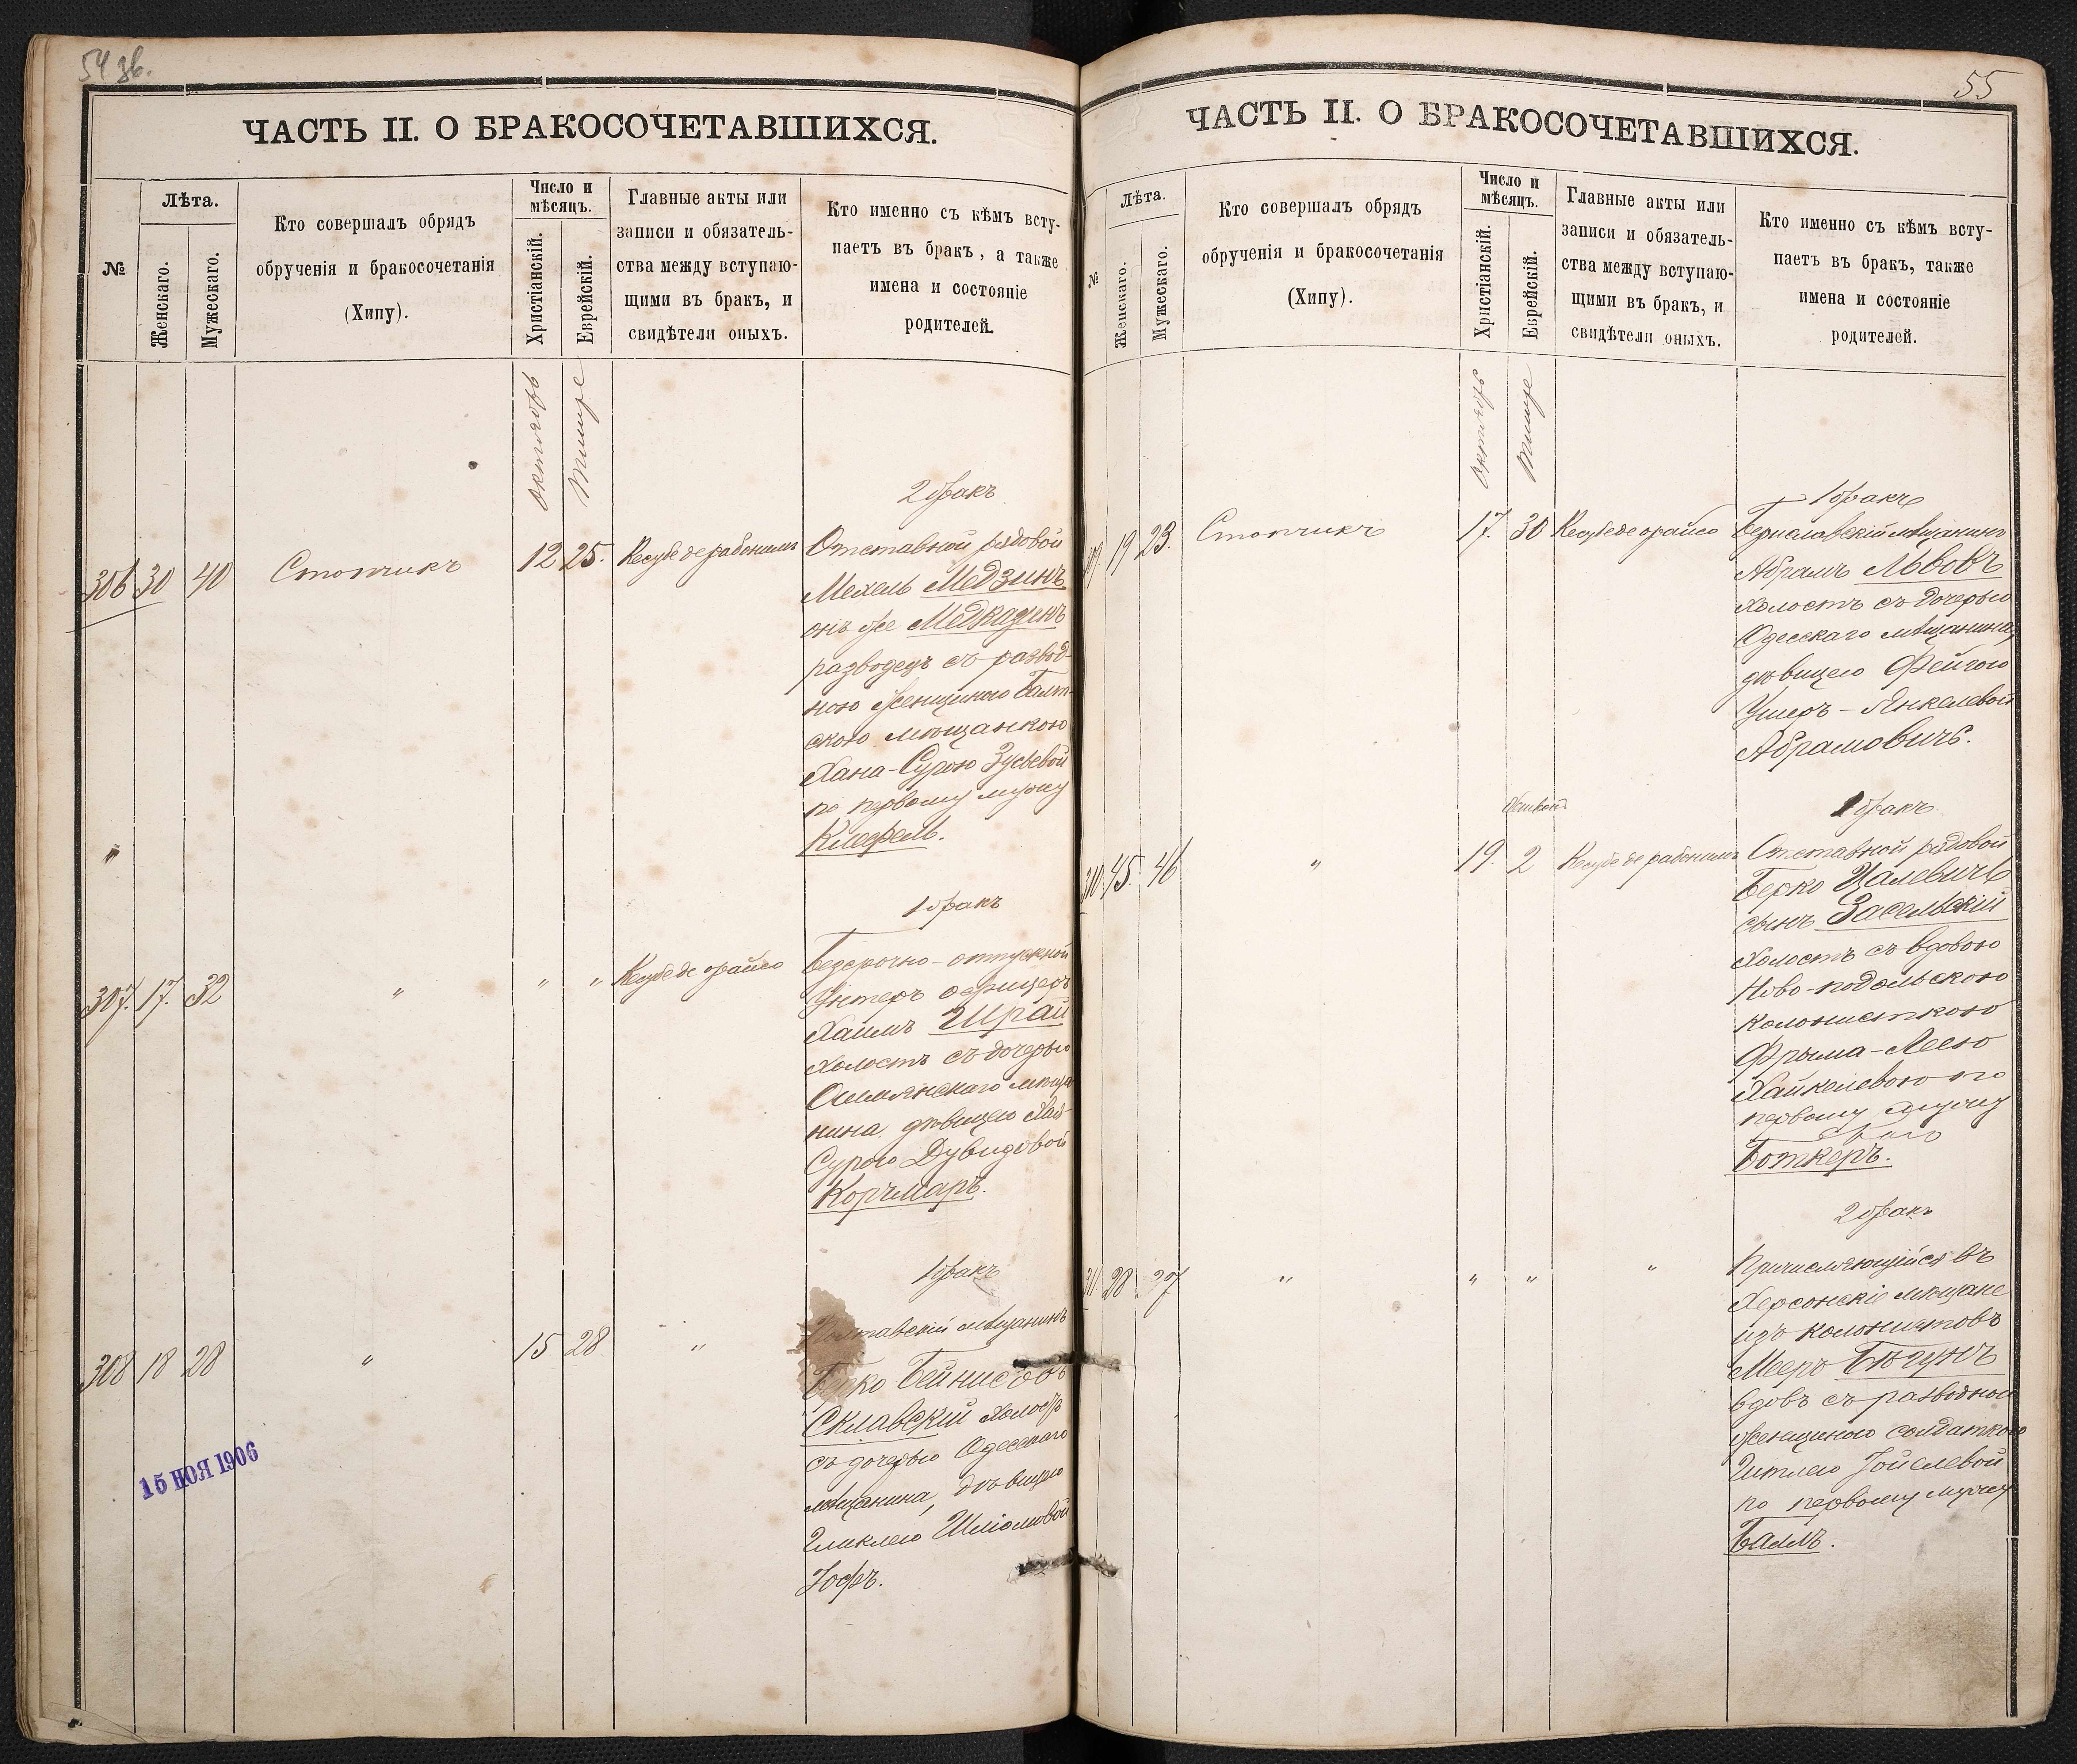 54 зв.
ЧАСТЬ II. О БРАКОСОЧЕТАВШИХСЯ.
№
Лѣта.
Женскаго.
Мужескаго.
Кто совершалъ обрядъ
обрученія и бракосочетанія
(Хипу).
Число и
мѣсяцъ.
Христіанскій.
Еврейскій.
Главные акты или
записи и обязатель-
ства между вступаю-
щими въ бракъ, и
свидѣтели оныхъ.
Кто именно съ кѣмъ всту-
паетъ въ бракъ, а также
имена и состояніе
родителей.
Октябрь
Тишре
2 бракъ
306 30 40 Стопчикъ 12 25. Кесубе де рабонимъ
Отставной рядовой
Мехель Медзинъ
онъ же Медказинъ
разводецъ съ развод-
ною женщиною Балт-
скою мѣщанкою
Хана-Сурою Зусьевой
по первому мужу
Клефель.
1 бракъ
307. 17. 32 " " " Кесубе де орайсо
Безсрочно-отпускной
Унтеръ офицеръ
Хаимъ Шрай
холостъ съ дочерью
Ошмянскаго мѣща-
нина дѣвицею Хая-
Сурою Дувидовой
Корчмаръ.
1 бракъ
308 18 28 " 15 28 "
Полтавскій мѣщанинъ
Берко Бейнисовъ
Склавскій холостъ
съ дочерью Одесскаго
мѣщанина, дѣвицею
Гликлею Шліомовой
Іофъ.
15 НОЯ 1906
55
ЧАСТЬ II. О БРАКОСОЧЕТАВШИХСЯ.
№
Лѣта.
Женскаго.
Мужескаго.
Кто совершалъ обрядъ
обрученія и бракосочетанія
(Хипу).
Число и
мѣсяцъ.
Христіанскій.
Еврейскій.
Главные акты или
записи и обязатель-
ства между вступаю-
щими въ бракъ, и
свидѣтели оныхъ.
Кто именно съ кѣмъ всту-
паетъ въ бракъ, также
имена и состояніе
родителей.
Октябрь
Тишре
1 бракъ
309. 19 23. Стопчикъ 17. 30 Кесубе де орайсо
Бериславскій мѣщанинъ
Абрамъ Львовъ
холостъ съ дочерью
Одесскаго мѣщанина,
дѣвицею Фейгою
Ушеръ-Янкелевой
Абрамовичъ.
1 бракъ
310 45. 46 " 19. 2 Кесубе де рабонимъ
Отставной рядовой
Берко Цалевичъ
сынъ Засельскій
холостъ съ вдовою
Ново-подольскою
колонисткою
Фрыма-Леею
Хайкелевою по
первому мужу
Боткеръ.
2 бракъ
311. 28 37 " " " "
Причисляющійся въ
Херсонскіе мѣщане
изъ колонистовъ
Мееръ Бѣгунъ
вдовъ съ разводною
женщиною солдаткою
Гитлею Іойелевой
по первому мужу
Балмъ.